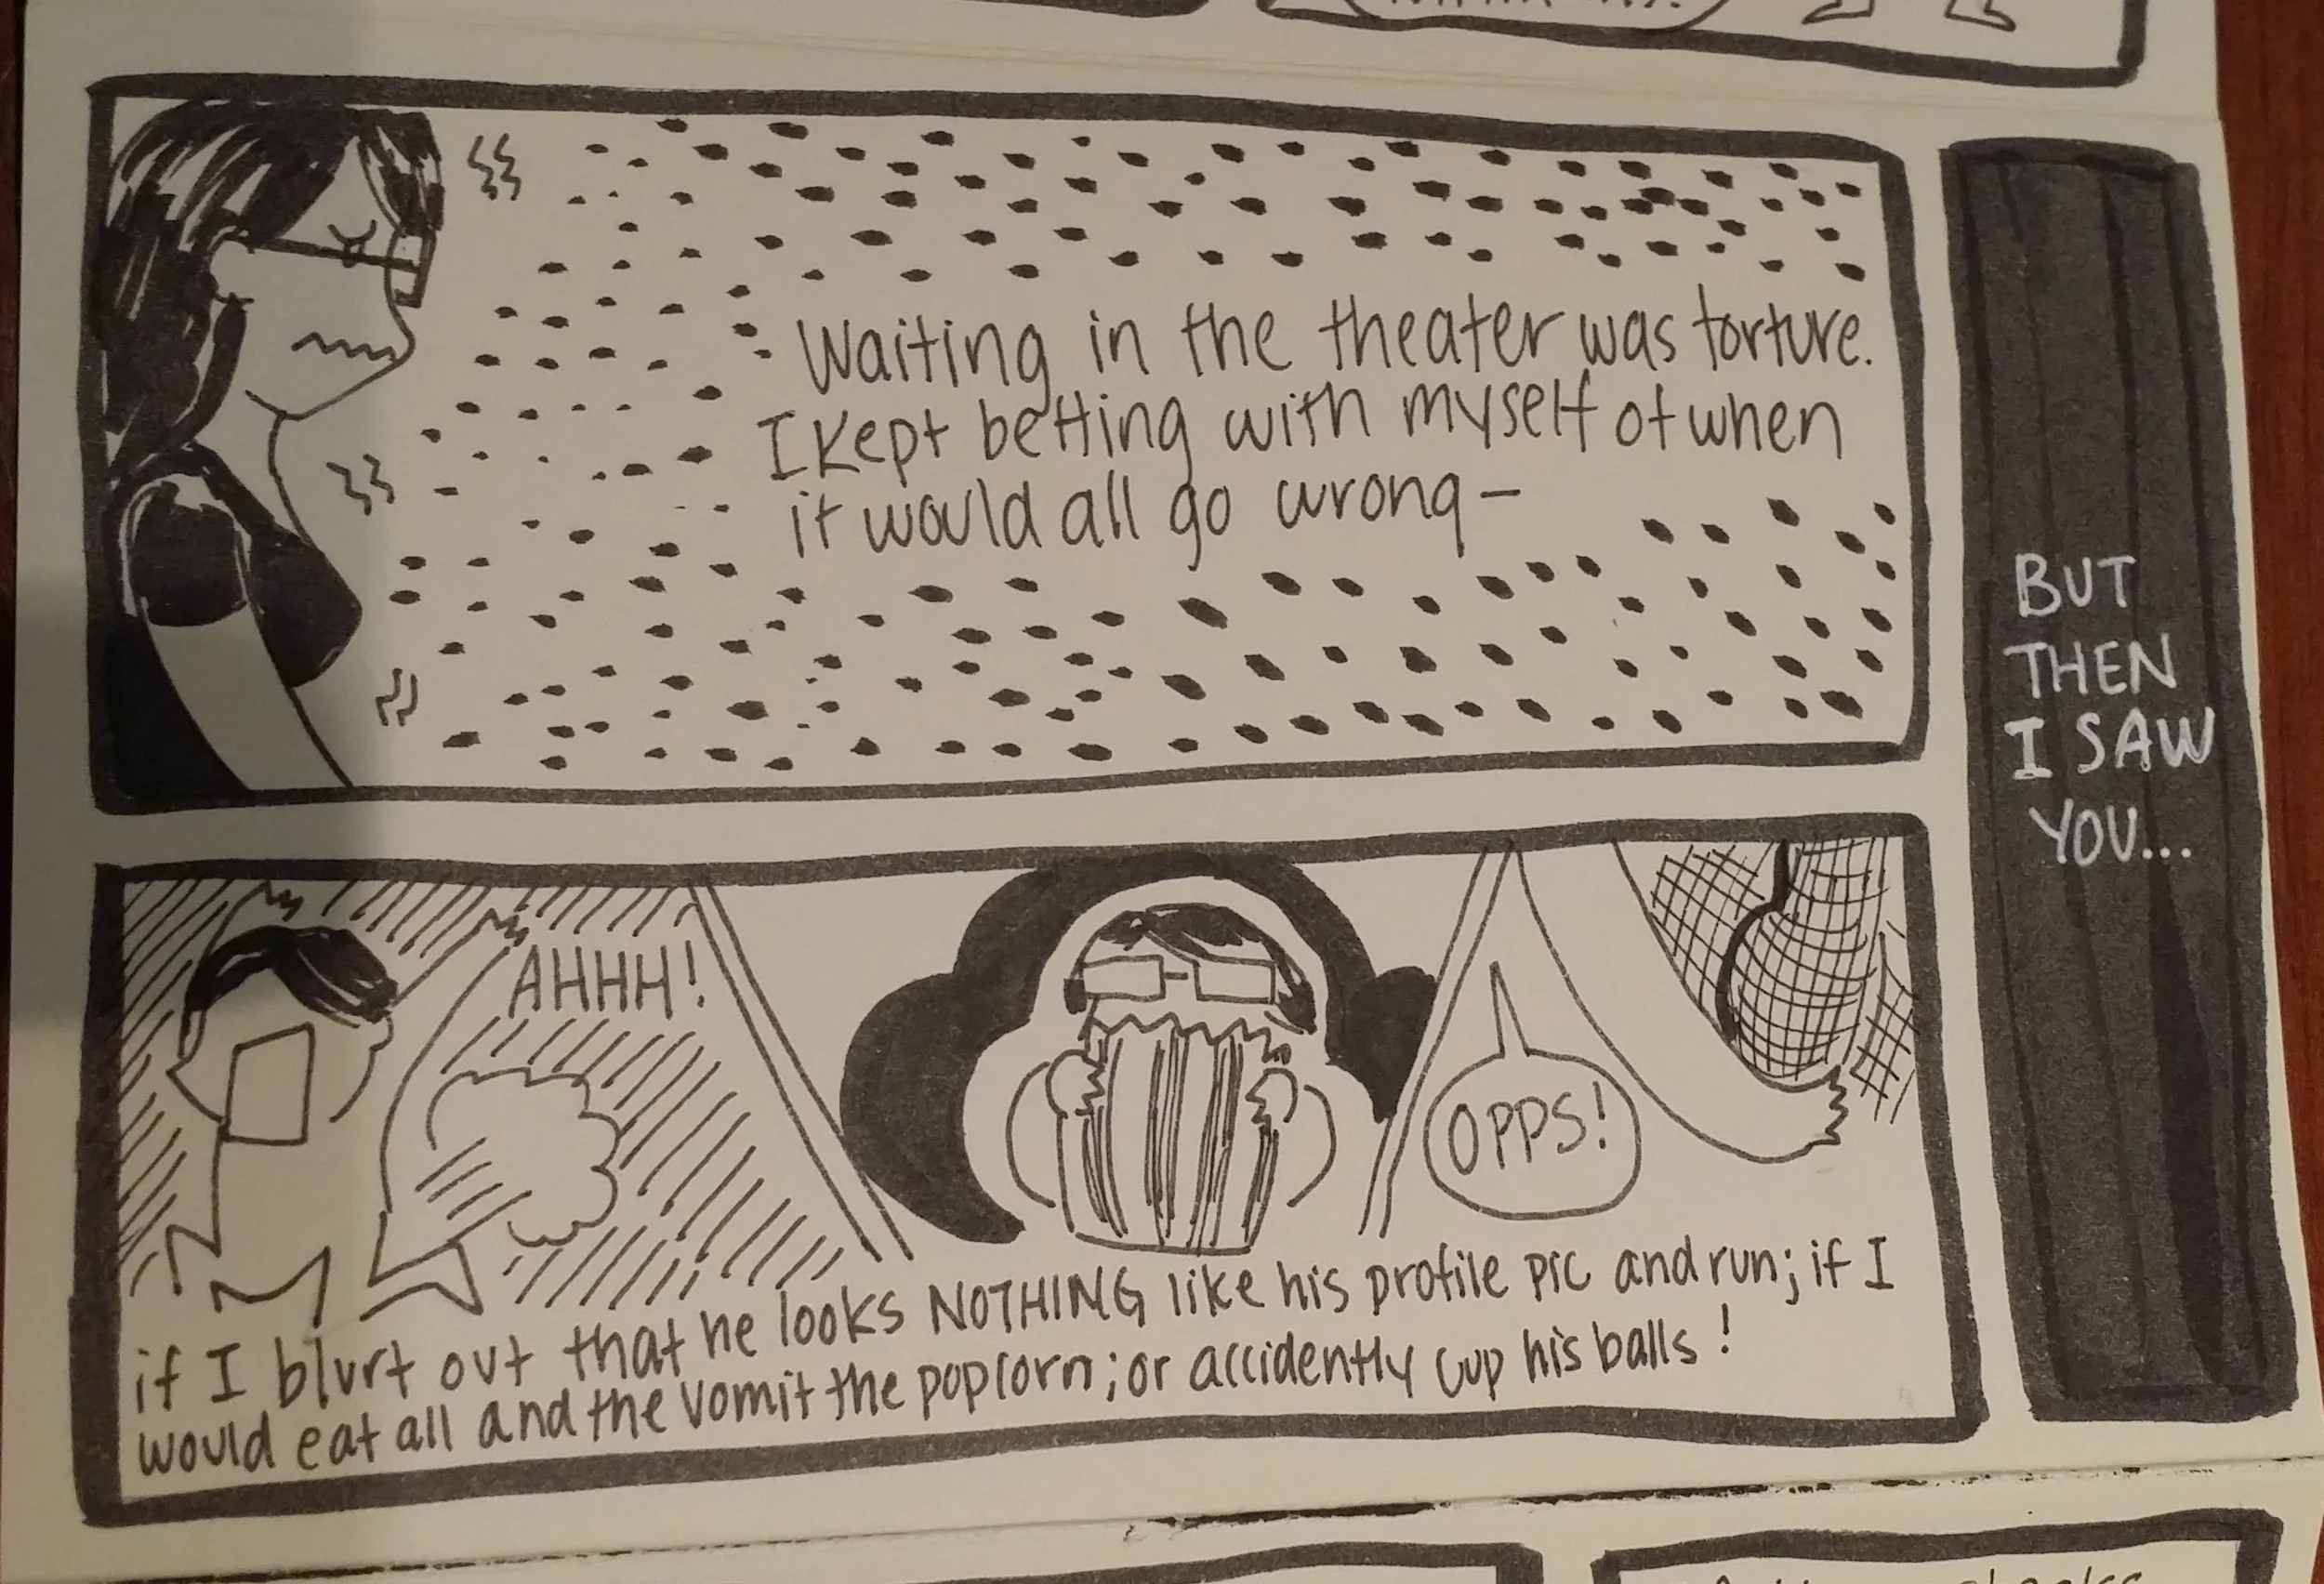 Waiting in the theater was torture.
I kept betting with myself of when
it would all go wrong—
AHHH!
OPPS!
if I blurt out that he looks NOTHING like his profile pic and run; if I
would eat all and the vomit the popcorn; or accidently cup his balls!
BUT
THEN
I SAW
YOU...